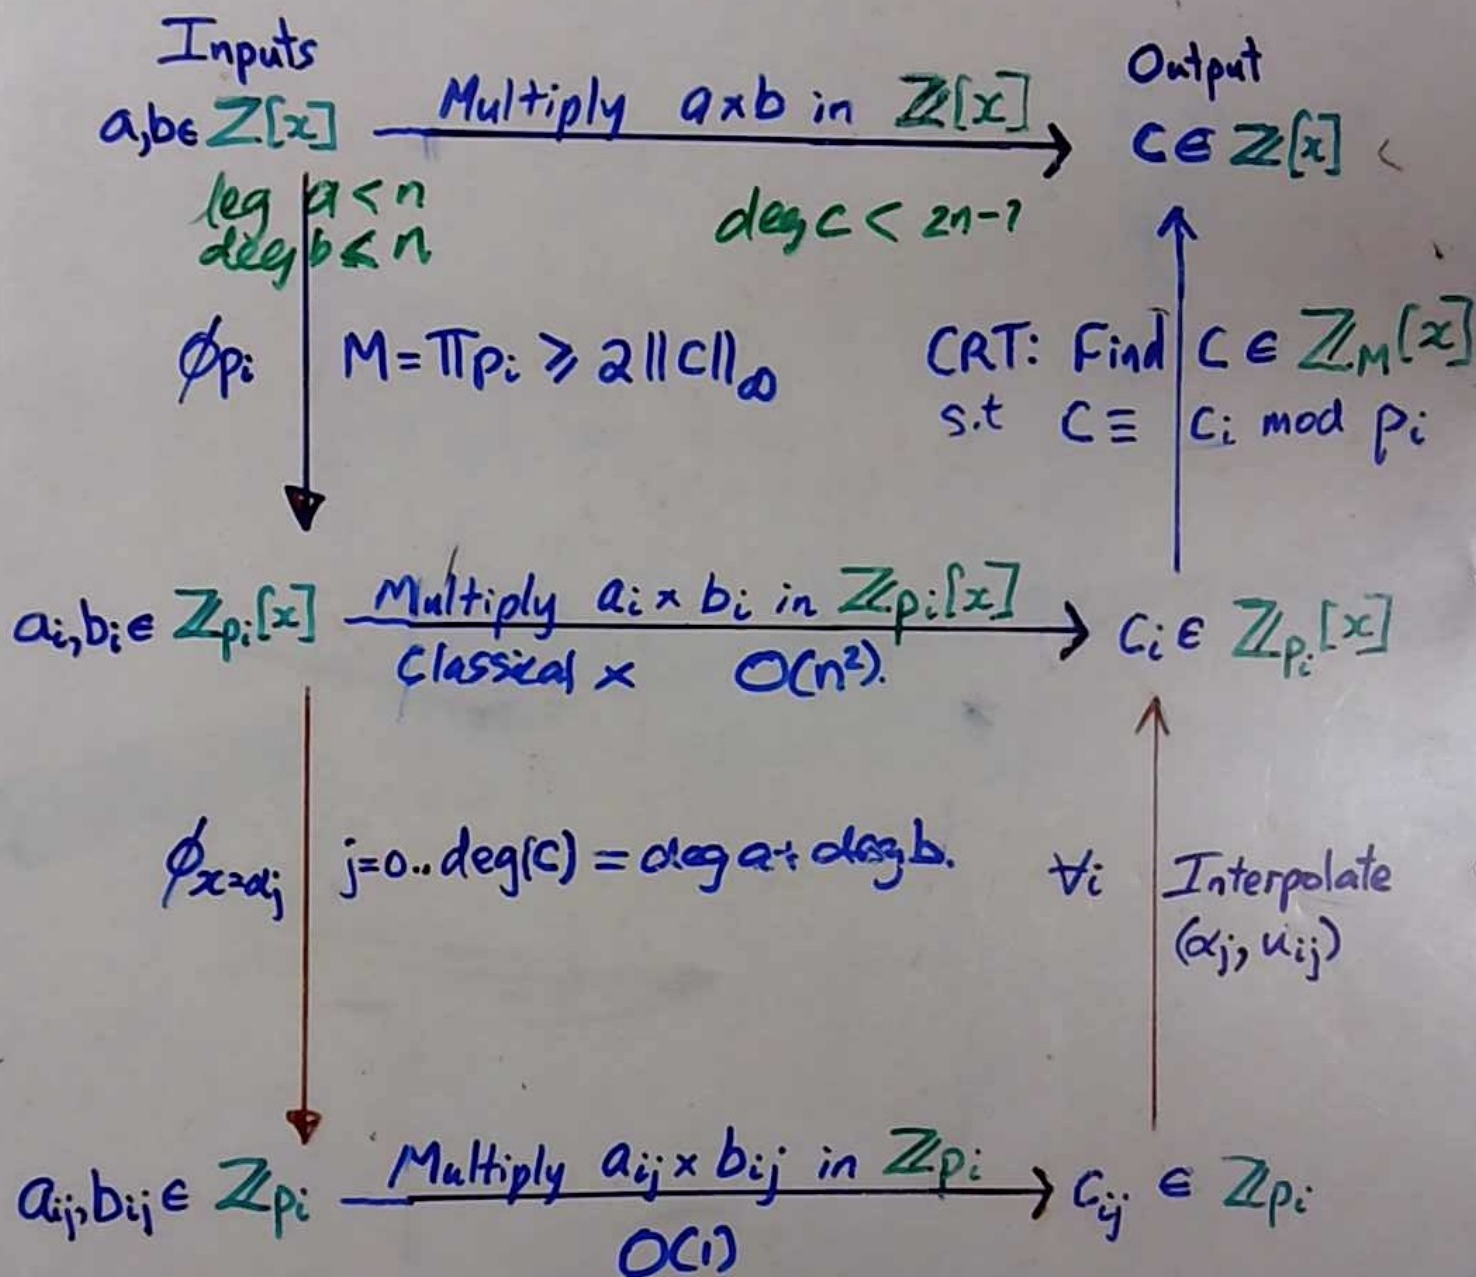 Inputs
Output
a,b ∈ ℤ[x] Multiply a×b in ℤ[x] C ∈ ℤ[x]
deg a < n
deg b < n
deg c < 2n-1
ϕpᵢ M = Πpᵢ ⩾ 2||C||∞
CRT: Find C ∈ ℤ_M[x]
s.t C ≡ Cᵢ mod pᵢ
aᵢ,bᵢ ∈ ℤpᵢ[x] Multiply aᵢ × bᵢ in ℤpᵢ[x] Cᵢ ∈ ℤpᵢ[x]
Classical × O(n²).
ϕx=αⱼ j=0..deg(C) = deg a + deg b.
∀i Interpolate
(αⱼ, uᵢⱼ)
aᵢⱼ,bᵢⱼ ∈ ℤpᵢ Multiply aᵢⱼ × bᵢⱼ in ℤpᵢ Cᵢⱼ ∈ ℤpᵢ
O(1)